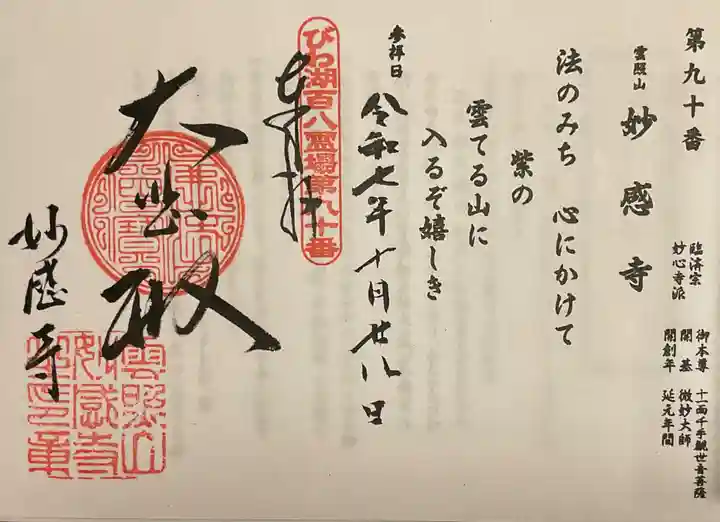 第九十番
雲照山 妙感寺
臨済宗
妙心寺派
御本尊 十一面千手観世音菩薩
開基 微妙大師
開創年 延元年間
法のみち 心にかけて
紫の
雲てる山に
入るぞ嬉しき
参拝日 令和七年十月廿八日
びわ湖百八霊場第九十番
奉拝
大悲殿
妙感寺
雲照山
妙感寺